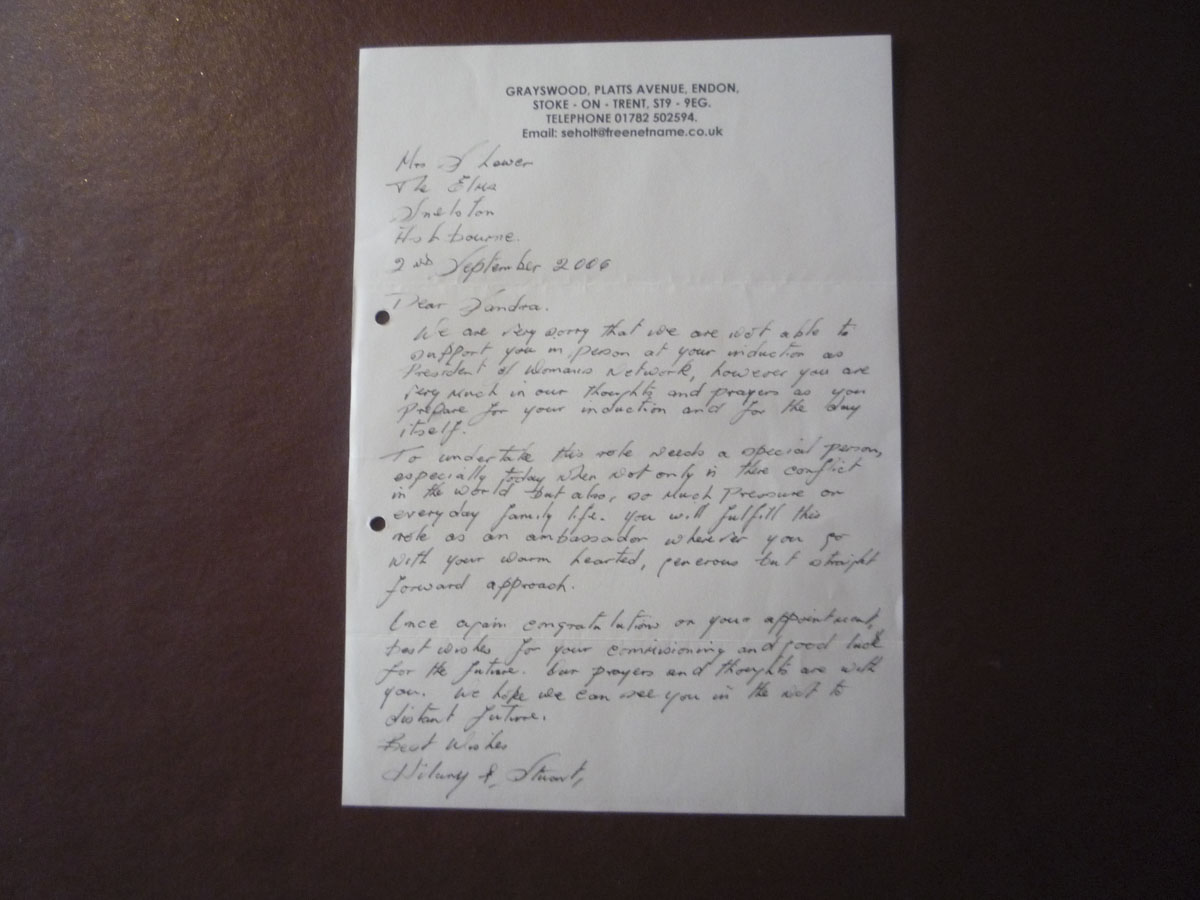 GRAYSWOOD, PLATTS AVENUE, ENDON,
STOKE - ON - TRENT, ST9 - 9EG.
TELEPHONE 01782 502594.
Email: seholt@freenetname.co.uk
Mrs S Lower
The Elms
Snelston
Ashbourne.
2nd September 2006
Dear Sandra.
We are very sorry that we are not able to
support you in person at your induction as
President of Womans Network, however you are
very much in our thoughts and prayers as you
prepare for your induction and for the day
itself.
To undertake this role needs a special person,
especially today when not only is there conflict
in the world but also, so much pressure on
everyday family life. you will fulfill this
role as an ambassador wherever you go
with your warm hearted, generous but straight
forward approach.
Once again congratulations on your appointment,
best wishes for your commisioning and good luck
for the future. Our prayers and thoughts are with
you. We hope we can see you in the not to
distant future.
Best Wishes
Hilary & Stuart,